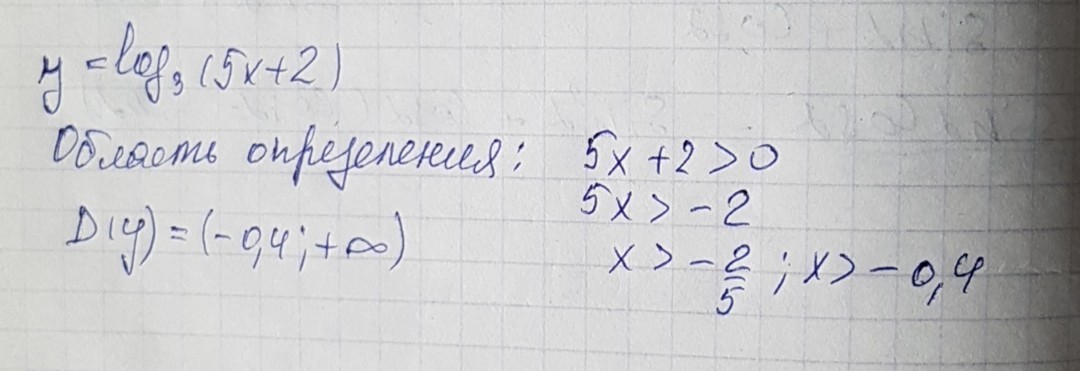 y = log₃ (5x+2)
Область определения: 5x+2>0
5x > -2
D(y) = (-0,4; +∞)
x > -2/5 ; x > -0,4